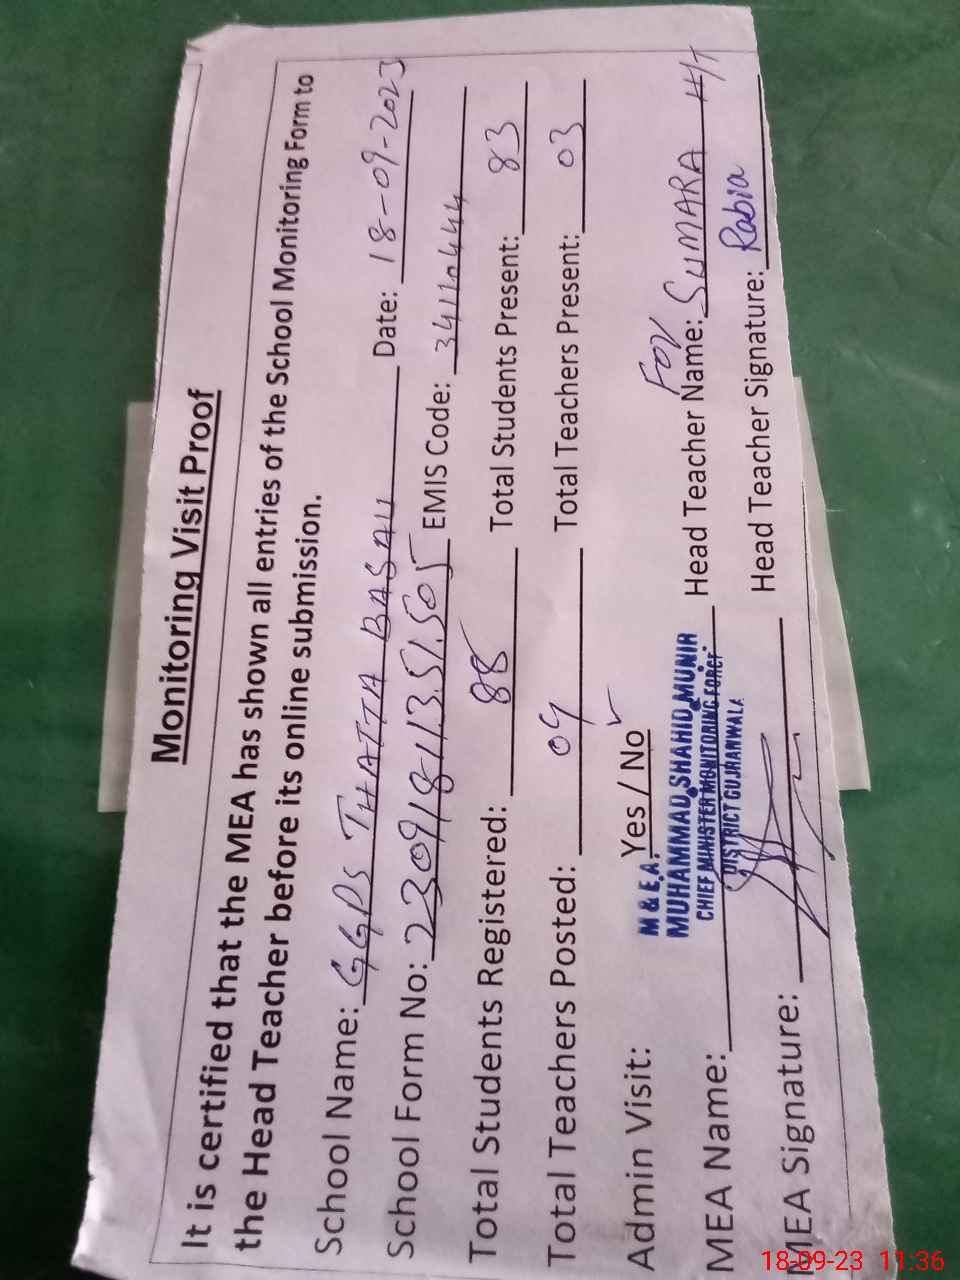 Monitoring Visit Proof
It is certified that the MEA has shown all entries of the School Monitoring Form to
the Head Teacher before its online submission.
School Name: GGPS THATTA BASAH Date: 18-09-2023
School Form No: 23091811351505 EMIS Code: 34110444
Total Students Registered: 88 Total Students Present: 83
Total Teachers Posted: 04 Total Teachers Present: 03
Admin Visit: Yes / No ✓
M & E.A.
MUHAMMAD SHAHID MUNIR
CHIEF MINISTER MONITORING FORCE
DISTRICT GUJRANWALA
For
MEA Name: Head Teacher Name: SUMARA H/T
MEA Signature: Head Teacher Signature: Rabia
18-09-23 11:36